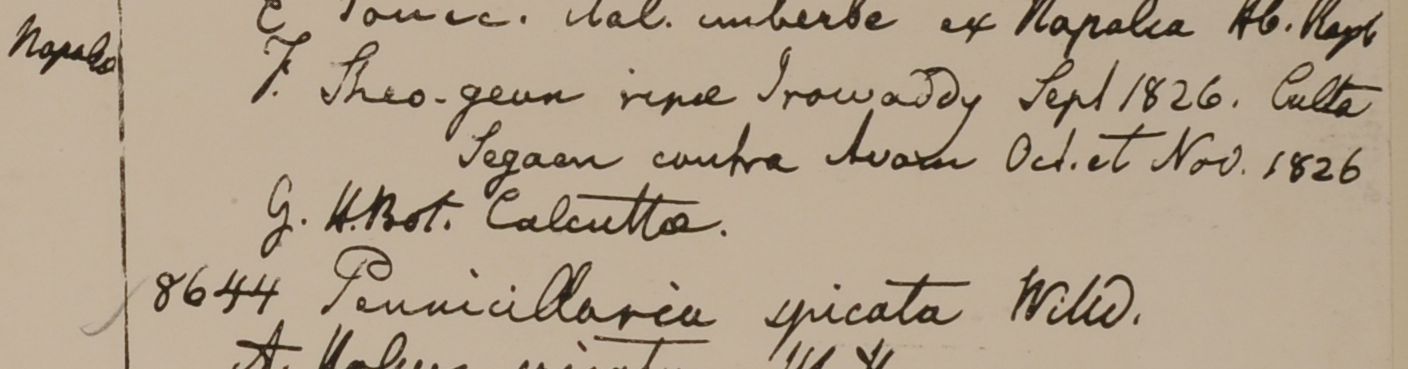 Napalia
E Panic. Ital. imberbe ex Napalia Hb. Roxb
F. Sheo-geun ripæ Irowaddy Sept 1826. Culta
Segaen contra Avam Oct. et Nov. 1826
G. H. Bot. Calcuttæ.
8644 Pennicillaria spicata Willd.
A. Holcus spicatus